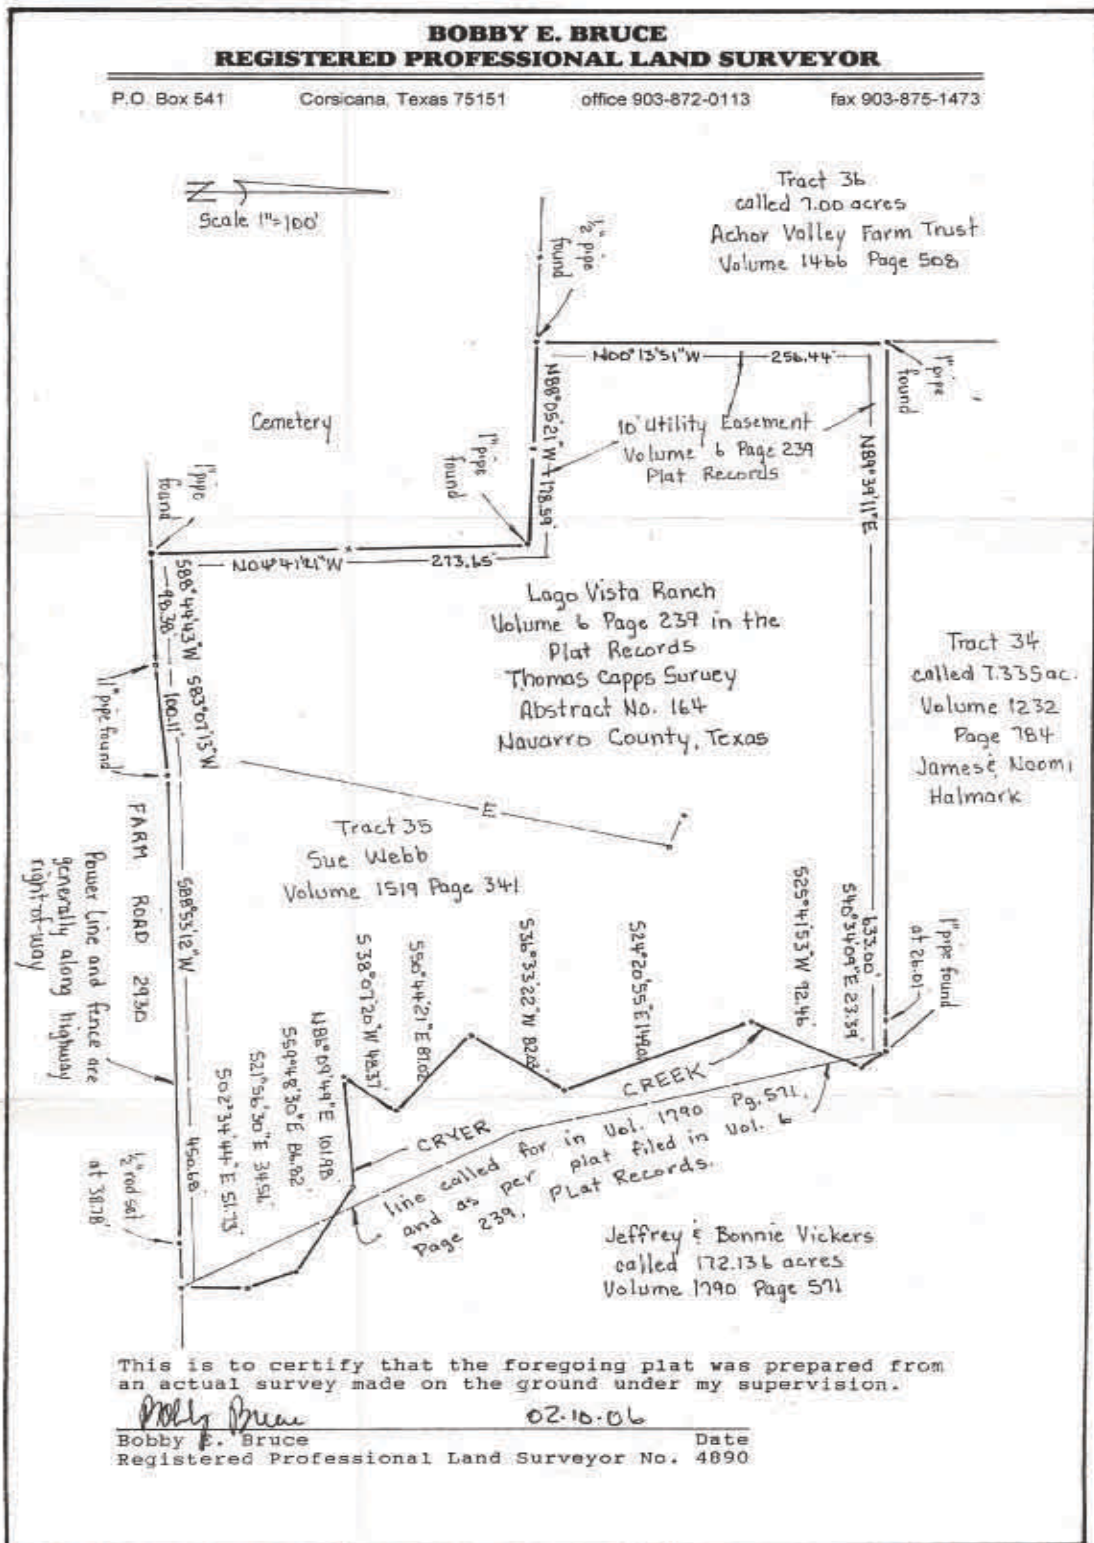 BOBBY E. BRUCE
REGISTERED PROFESSIONAL LAND SURVEYOR
P.O. Box 541 Corsicana, Texas 75151 office 903-872-0113 fax 903-875-1473
N
Scale 1"=100'
Tract 36
called 7.00 acres
Achor Valley Farm Trust
Volume 1466 Page 508
1/2" pipe
found
N00°13'51"W 256.44'
1" pipe
found
Cemetery
1" pipe
found
N88°05'21"W 178.59'
10' Utility Easement
Volume 6 Page 239
Plat Records
N89°39'11"E
633.00'
1" pipe
found
N04°41'21"W 273.65'
S88°44'43"W
98.38'
S83°07'13"W
100.11'
1" pipe found
Lago Vista Ranch
Volume 6 Page 239 in the
Plat Records
Thomas Capps Survey
Abstract No. 164
Navarro County, Texas
Tract 34
called 7.335ac.
Volume 1232
Page 784
James & Naomi
Halmark
E
Tract 35
Sue Webb
Volume 1519 Page 341
FARM ROAD 2930
Power line and fence are
generally along highway
right-of-way
S88°53'12"W
450.68'
1/2" rod set
at 38.78'
S02°34'44"E 51.73'
S21°56'30"E 34.56'
S59°48'30"E 86.82'
N86°09'49"E 101.98'
S38°07'20"W 48.37'
S50°44'21"E 81.02'
S36°33'22"W 82.03'
S24°20'55"E 149.01'
S25°41'53"W 92.46'
S40°34'09"E 23.39'
1" pipe found
at 26.01'
CRYER CREEK
line called for in Vol. 1790 Pg. 571,
and as per plat filed in Vol. 6
Page 239, Plat Records.
Jeffrey & Bonnie Vickers
called 172.136 acres
Volume 1790 Page 571
This is to certify that the foregoing plat was prepared from
an actual survey made on the ground under my supervision.
Bobby Bruce 02-10-06
Bobby E. Bruce Date
Registered Professional Land Surveyor No. 4890